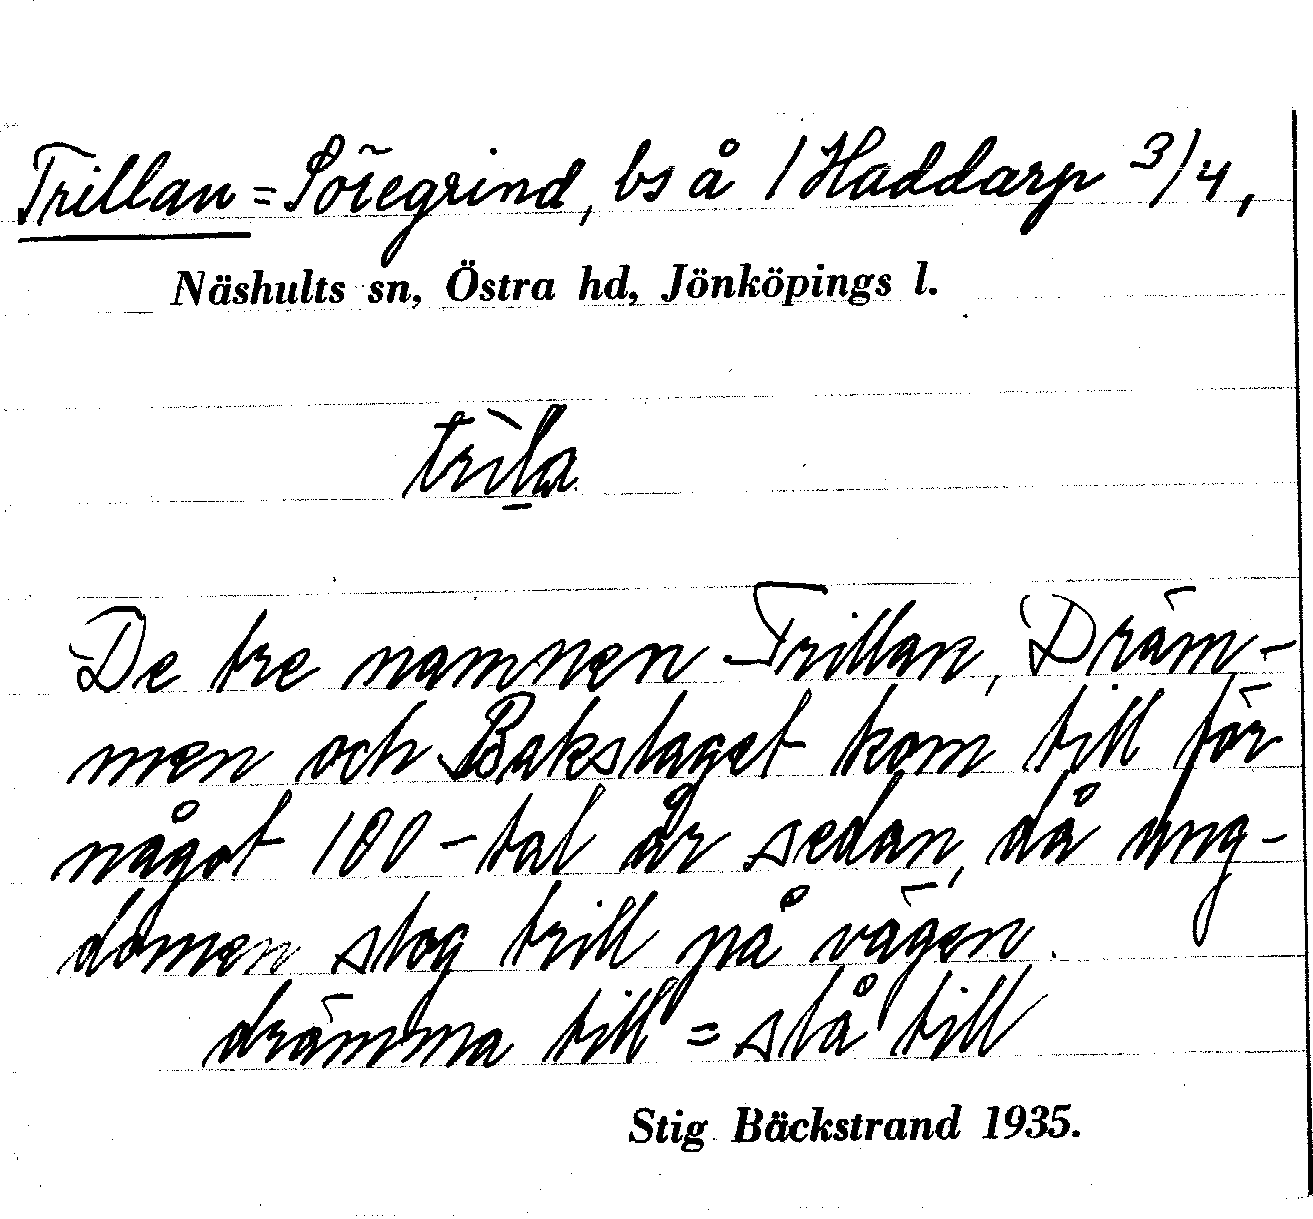 Trillan = Söregrind, bs å 1 Haddarp 3/4,
Näshults sn, Östra hd, Jönköpings l.
trìla
De tre namnen Trillan, Dräm-
men och Bakslaget kom till för
något 100-tal år sedan, då ung-
domen slog trill på vägen.
drämma till = slå till
Stig Bäckstrand 1935.